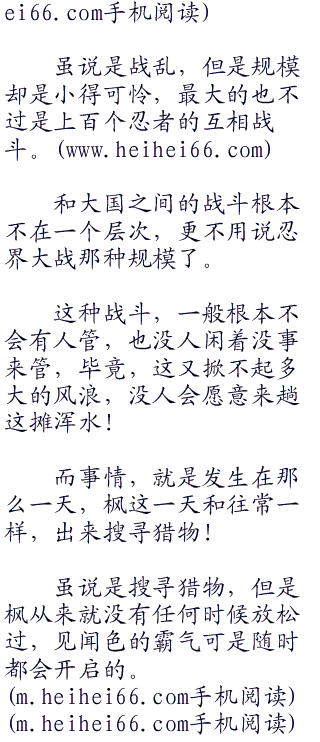 ei66.com手机阅读)
虽说是战乱，但是规模
却是小得可怜，最大的也不
过是上百个忍者的互相战
斗。(www.heihei66.com)
和大国之间的战斗根本
不在一个层次，更不用说忍
界大战那种规模了。
这种战斗，一般根本不
会有人管，也没人闲着没事
来管，毕竟，这又掀不起多
大的风浪，没人会愿意来趟
这摊浑水！
而事情，就是发生在那
么一天，枫这一天和往常一
样，出来搜寻猎物！
虽说是搜寻猎物，但是
枫从来就没有任何时候放松
过，见闻色的霸气可是随时
都会开启的。
(m.heihei66.com手机阅读)
(m.heihei66.com手机阅读)